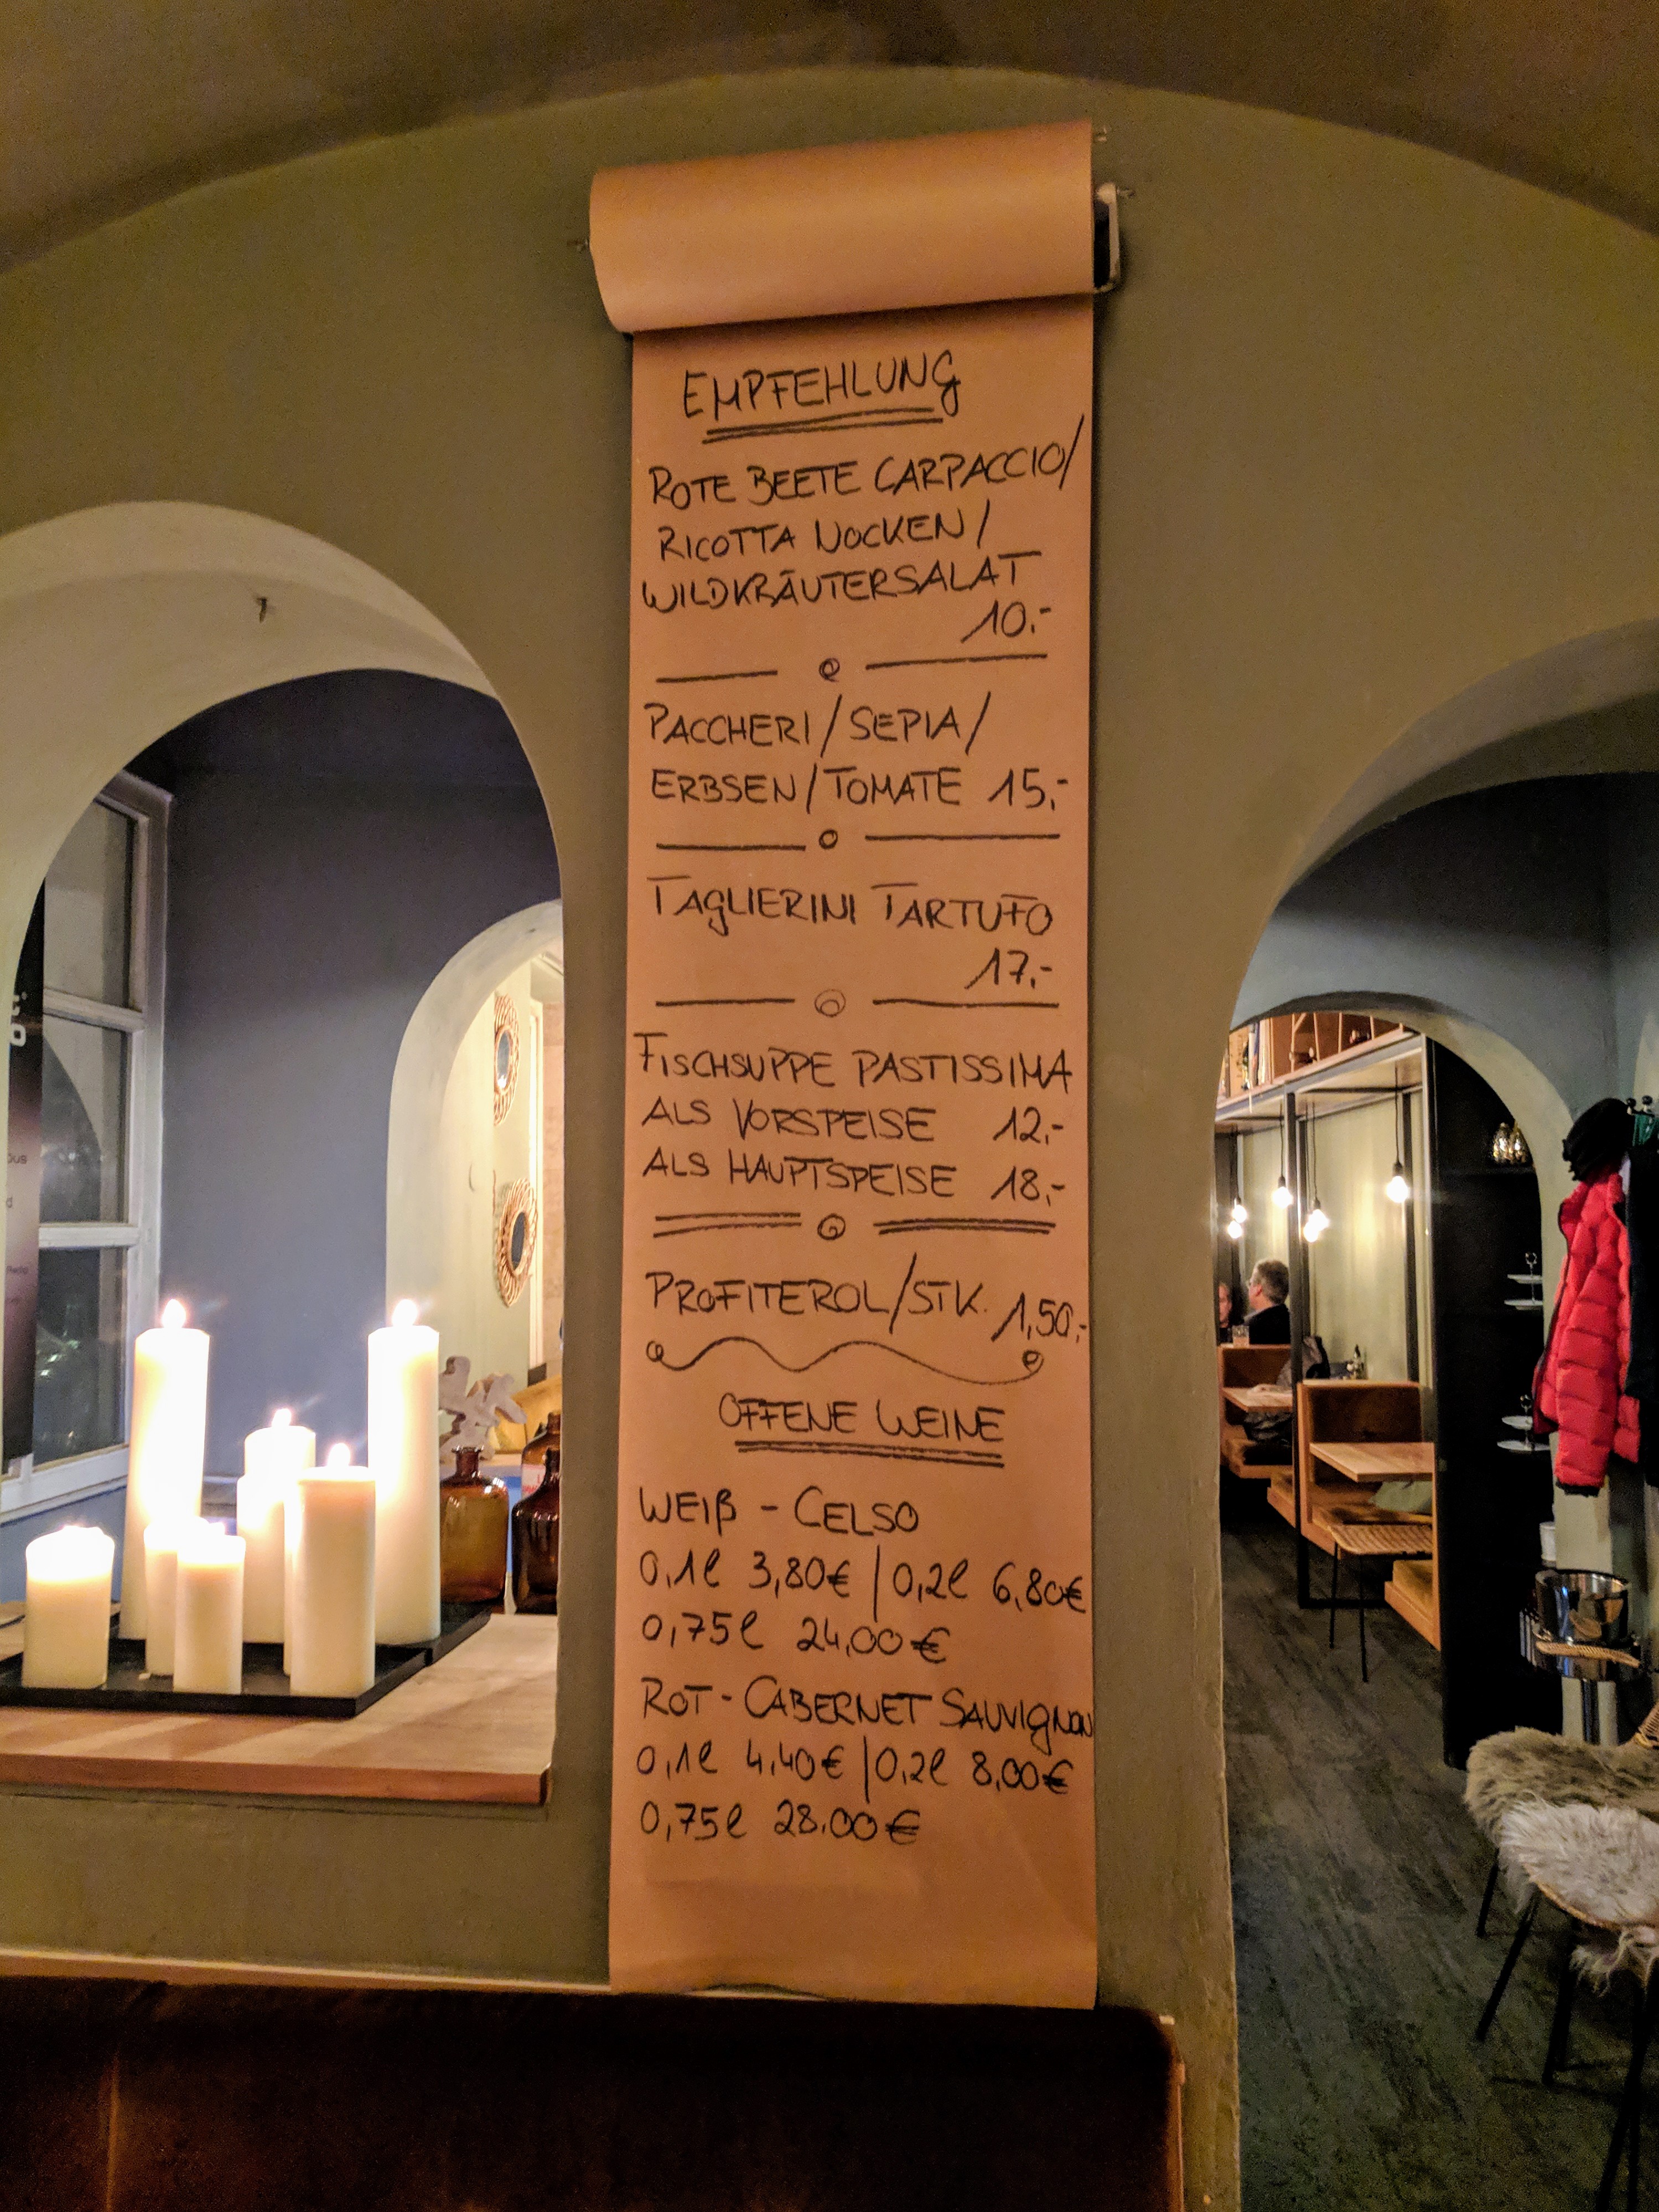 EMPFEHLUNG
ROTE BEETE CARPACCIO/
RICOTTA NOCKEN/
WILDKRÄUTERSALAT
10,-
PACCHERI/SEPIA/
ERBSEN/TOMATE 15,-
TAGLIERINI TARTUFO
17,-
FISCHSUPPE PASTISSIMA
ALS VORSPEISE 12,-
ALS HAUPTSPEISE 18,-
PROFITEROL/STK. 1,50,-
OFFENE WEINE
WEIß - CELSO
0,1l 3,80€ | 0,2l 6,80€
0,75l 24,00€
ROT - CABERNET SAUVIGNON
0,1l 4,40€ | 0,2l 8,00€
0,75l 28,00€